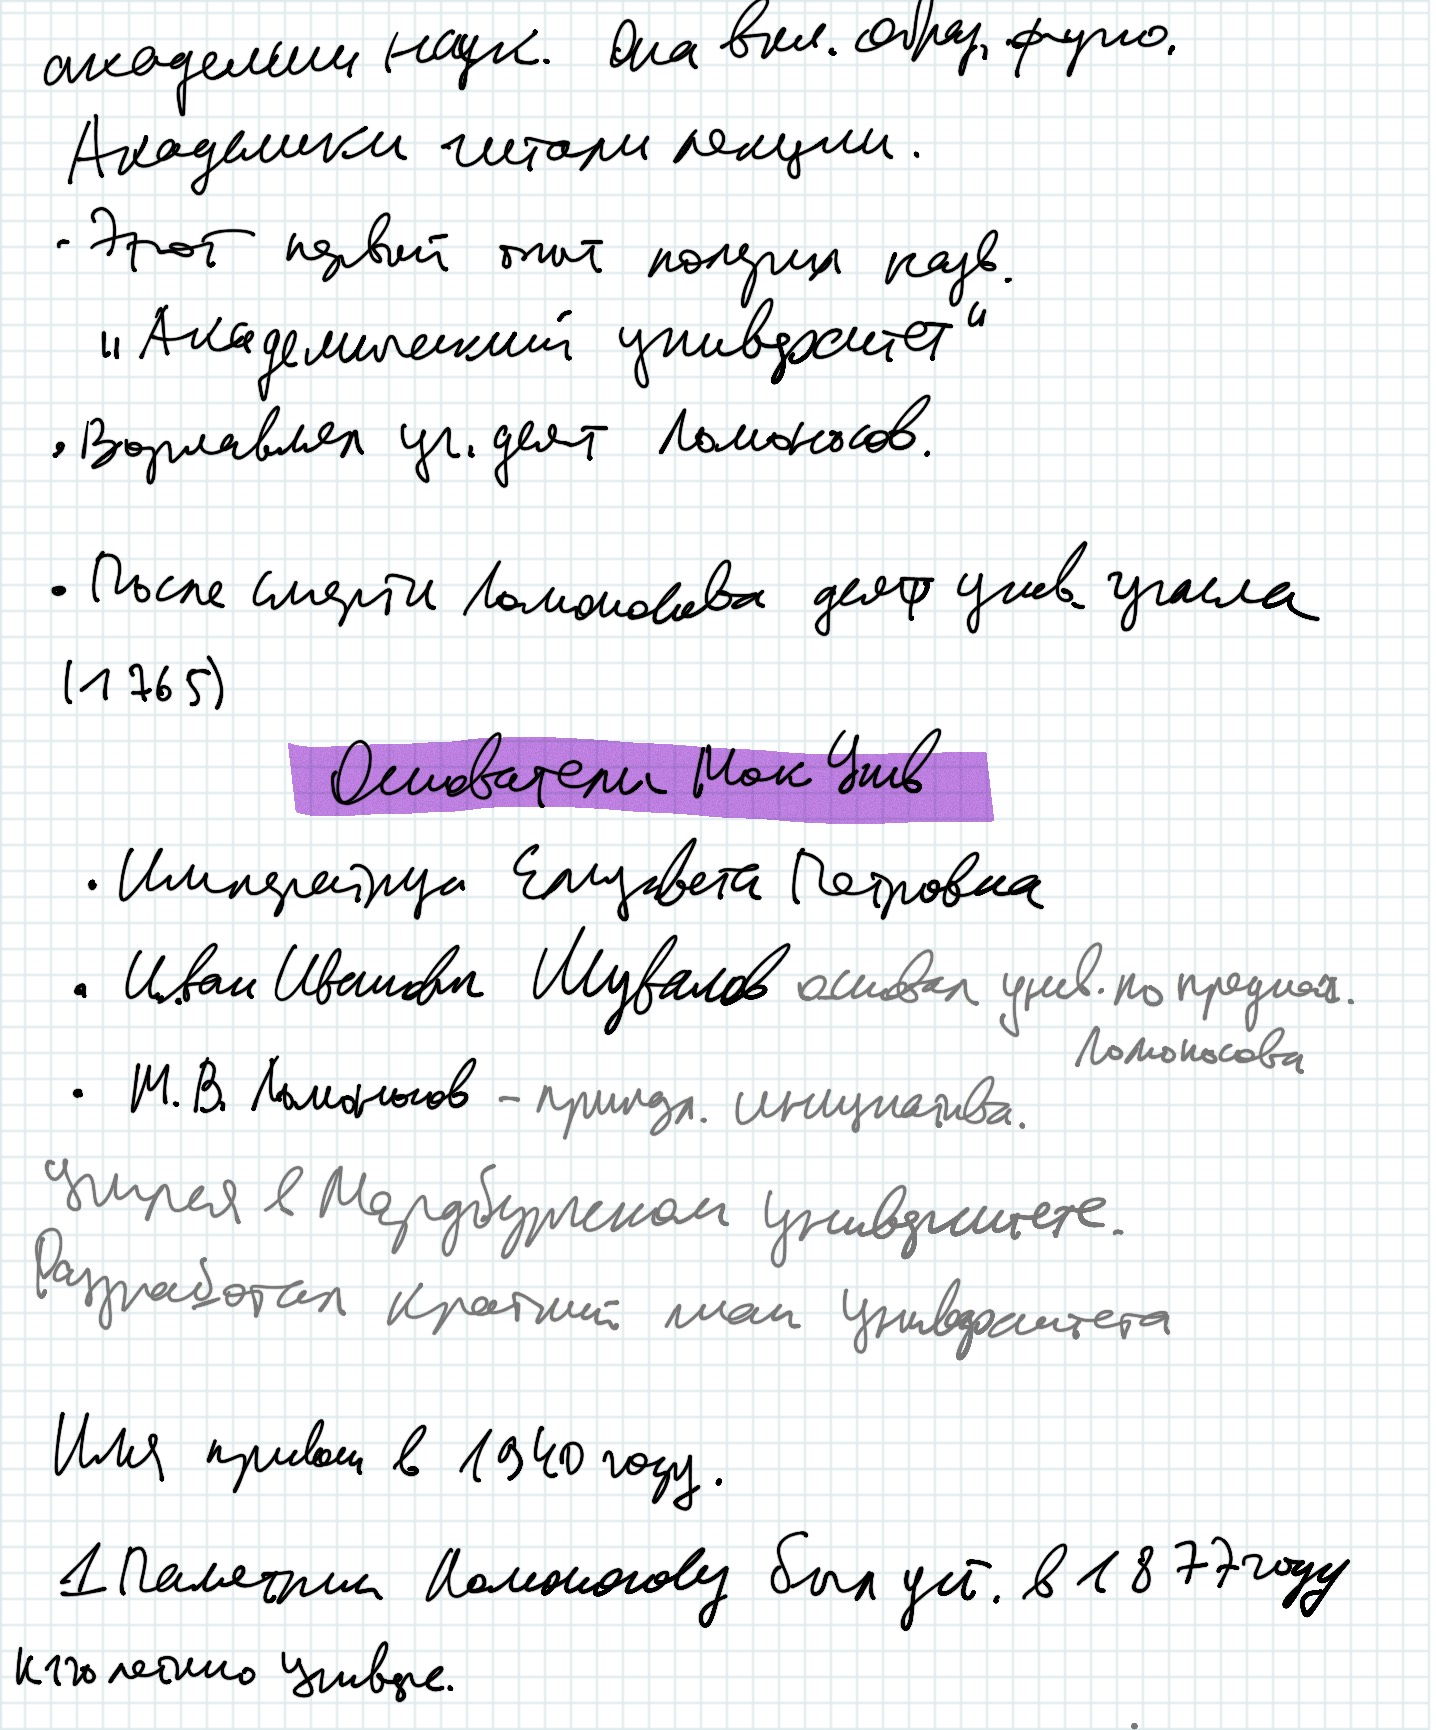 академии наук. Она вкл. образ. функ.
Академики читали лекции.
· Этот первый опыт получил назв.
„Академический университет“
· Возглавлял уч. деят Ломоносов.
· После смерти Ломоносова деят унив. угасла
(1765)
Основатели Мок Унив
· Императрица Елизавета Петровна
· Иван Иванович Шувалов основал унив. по предлож.
Ломоносова
· М.В. Ломоносов – принадл. инициатива.
Учился в Университете.
Разработал краткий план Университета
Имя присвоен в 1940 году.
1 Памятник Ломоносову был уст. в 1877 году
к летию Универс.